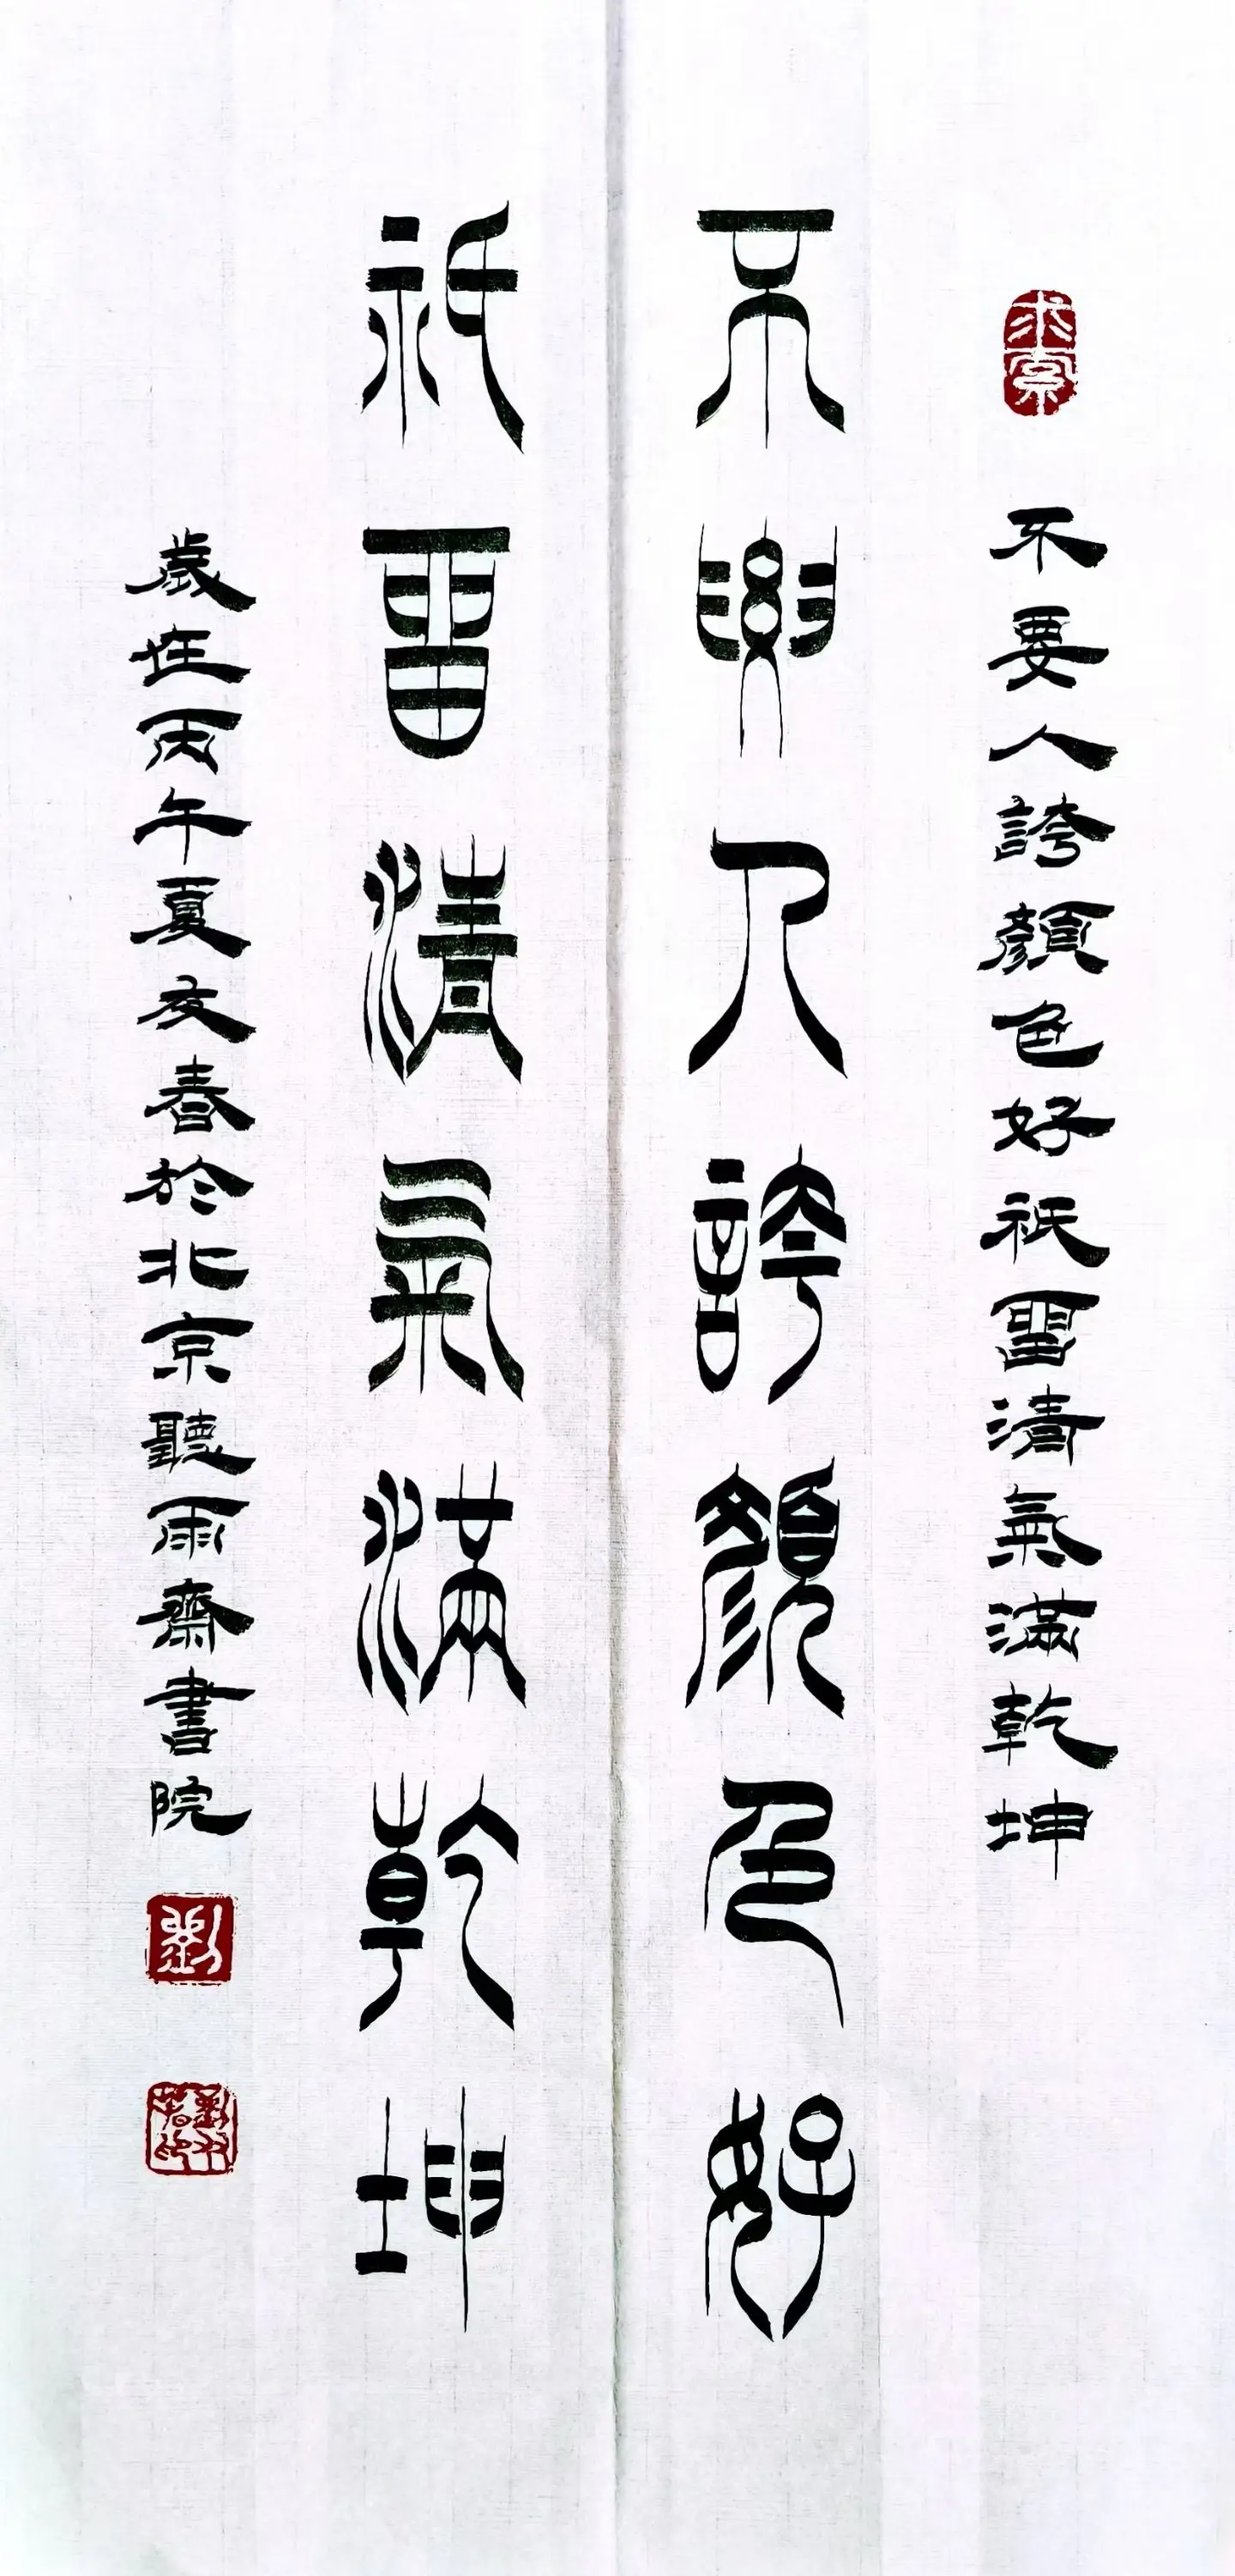 求索
不要人誇顏色好祇畱清氣滿乾坤
不要人誇顏色好
祇畱清氣滿乾坤
歲在丙午夏友春於北京聽雨齋書院
劉
劉友春印